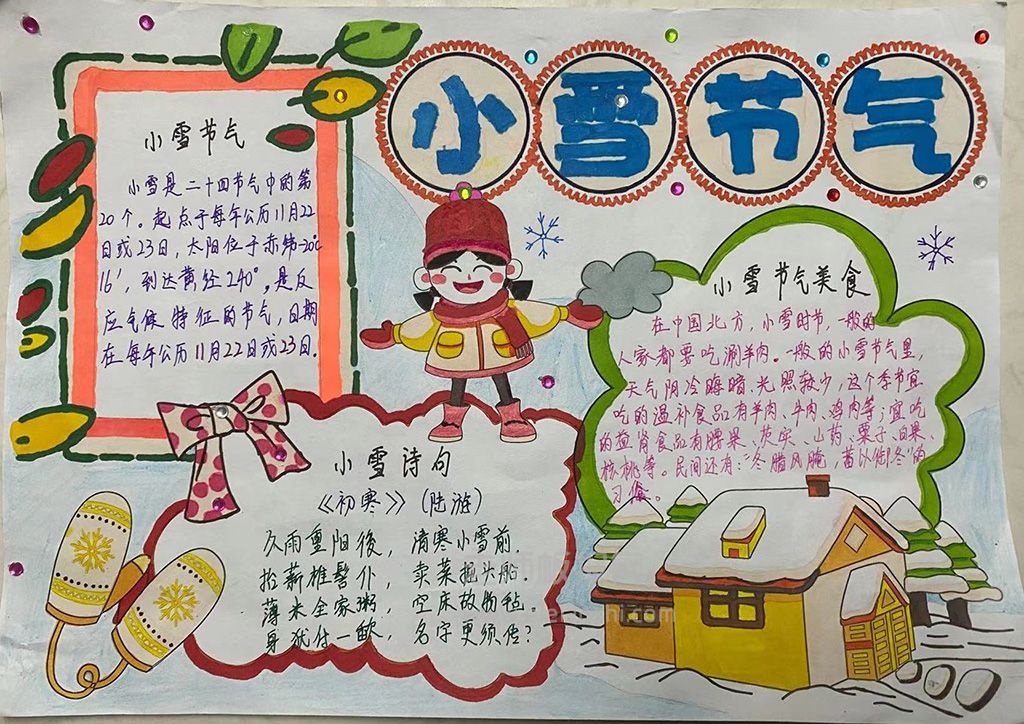 小雪节气
小雪节气
小雪是二十四节气中的第
20个。起点于每年公历11月22
日或23日,太阳位于赤纬-20°
16′,到达黄经240°。是反
应气候特征的节气,日期
在每年公历11月22日或23日.
小雪节气美食
在中国北方,小雪时节,一般的
人家都要吃涮羊肉。一般的小雪节气里,
天气阴冷晦暗.光照较少,这个季节宜
吃的温补食品有羊肉、牛肉、鸡肉等;宜吃
的益肾食品有腰果、芡实、山药、栗子、白果、
核桃等。民间还有:"冬腊风腌,蓄以御冬"的
习俗。
小雪诗句
《初寒》(陆游)
久雨重阳後,清寒小雪前.
拾薪椎髻仆,卖菜掘头船.
薄米全家粥,空床故物毡。
身犹付一歃,名字更须传?